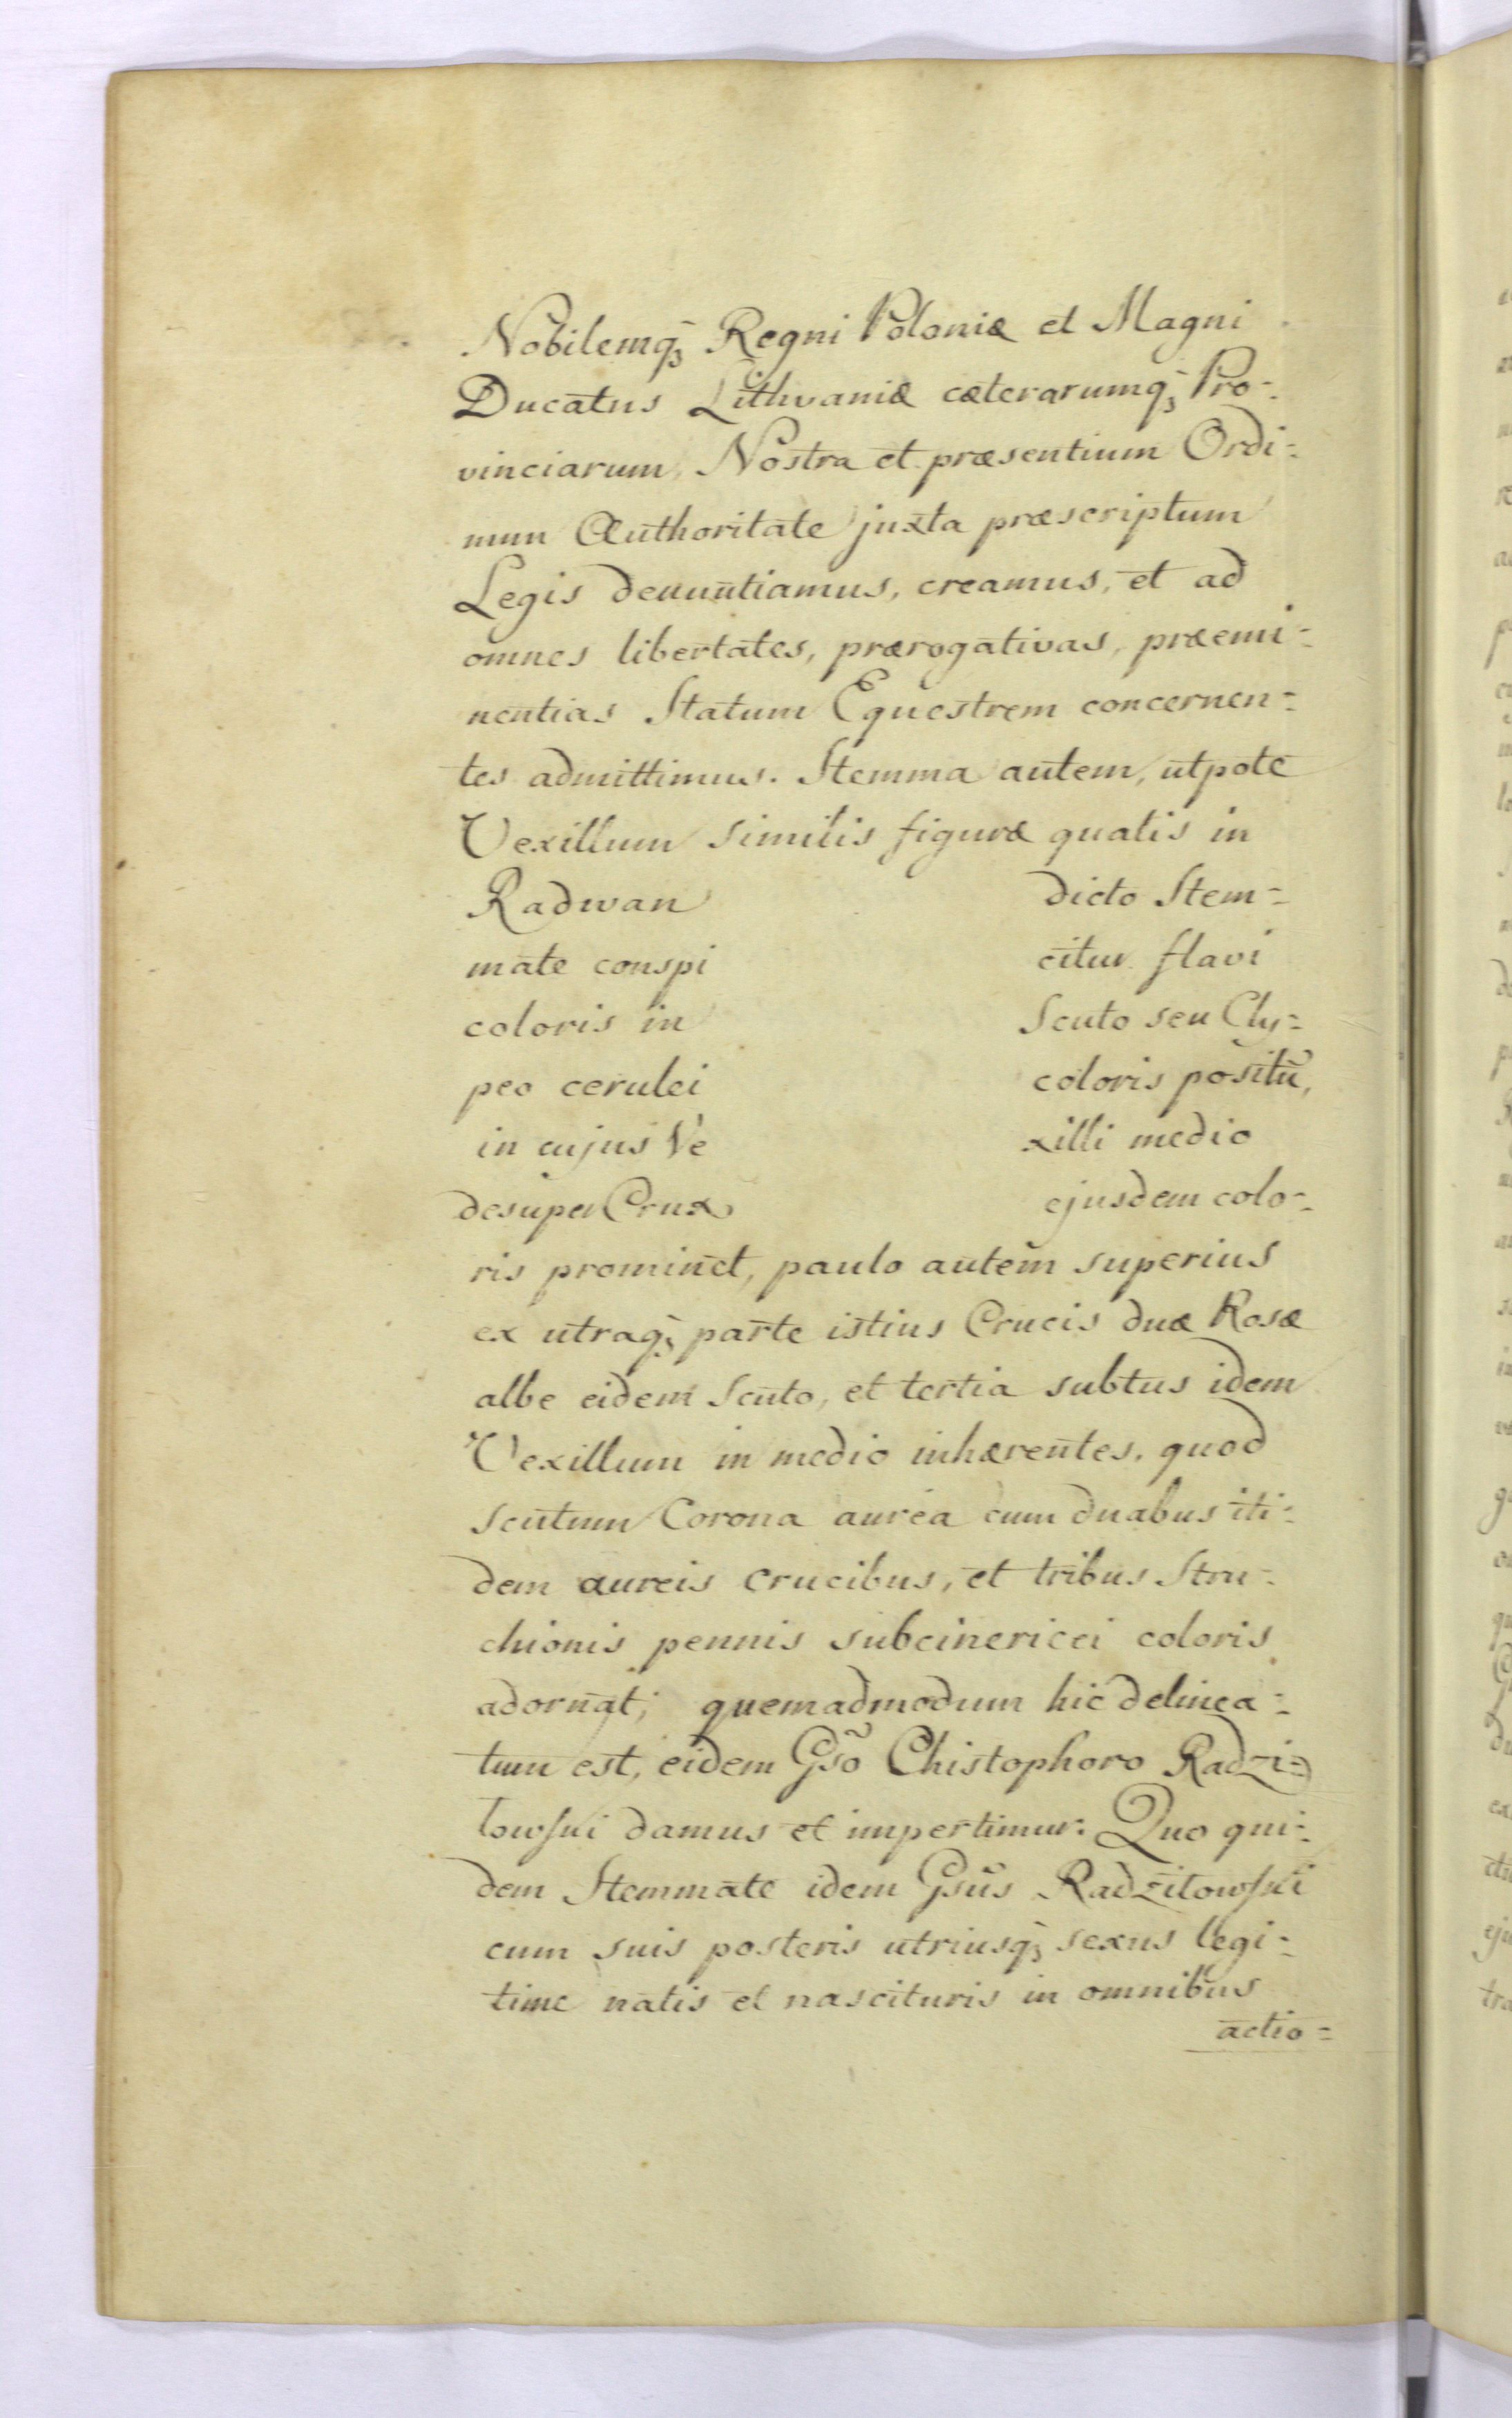 Nobilemq; Regni Poloniæ et Magni
Ducatus Lithvaniæ cæterarumq; Pro=
vinciarum, Nostra et præsentium Ordi=
num Authoritate juxta præscriptum
Legis denuntiamus, creamus, et ad
omnes libertates, prærogativas, præemi=
nentias Statum Equestrem concernen=
tes admittimus. Stemma autem, utpote
Vexillum similis figuræ qualis in
Radwan dicto Stem=
mate conspi citur flavi
coloris in Scuto seu Cly=
peo cerulei coloris positũ,
in cujus Ve xilli medio
desuper Crux ejusdem colo=
ris prominet, paulo autem superius
ex utraq; parte istius Crucis duæ Rosæ
albe eidem Scuto, et tertia subtus idem
Vexillum in medio inhærentes, quod
scutum Corona aurea cum duabus iti=
dem aureis crucibus, et tribus Stru=
chionis pennis subcinericei coloris
adornat; quemadmodum hic delinea=
tum est, eidem Gsõ Chistophoro Radzi=
łowski damus et impertimur. Quo qui=
dem Stemmate idem Gsũs Radziłowski
cum suis posteris utriusq; sexus legi=
time natis et nascituris in omnibus
actio=